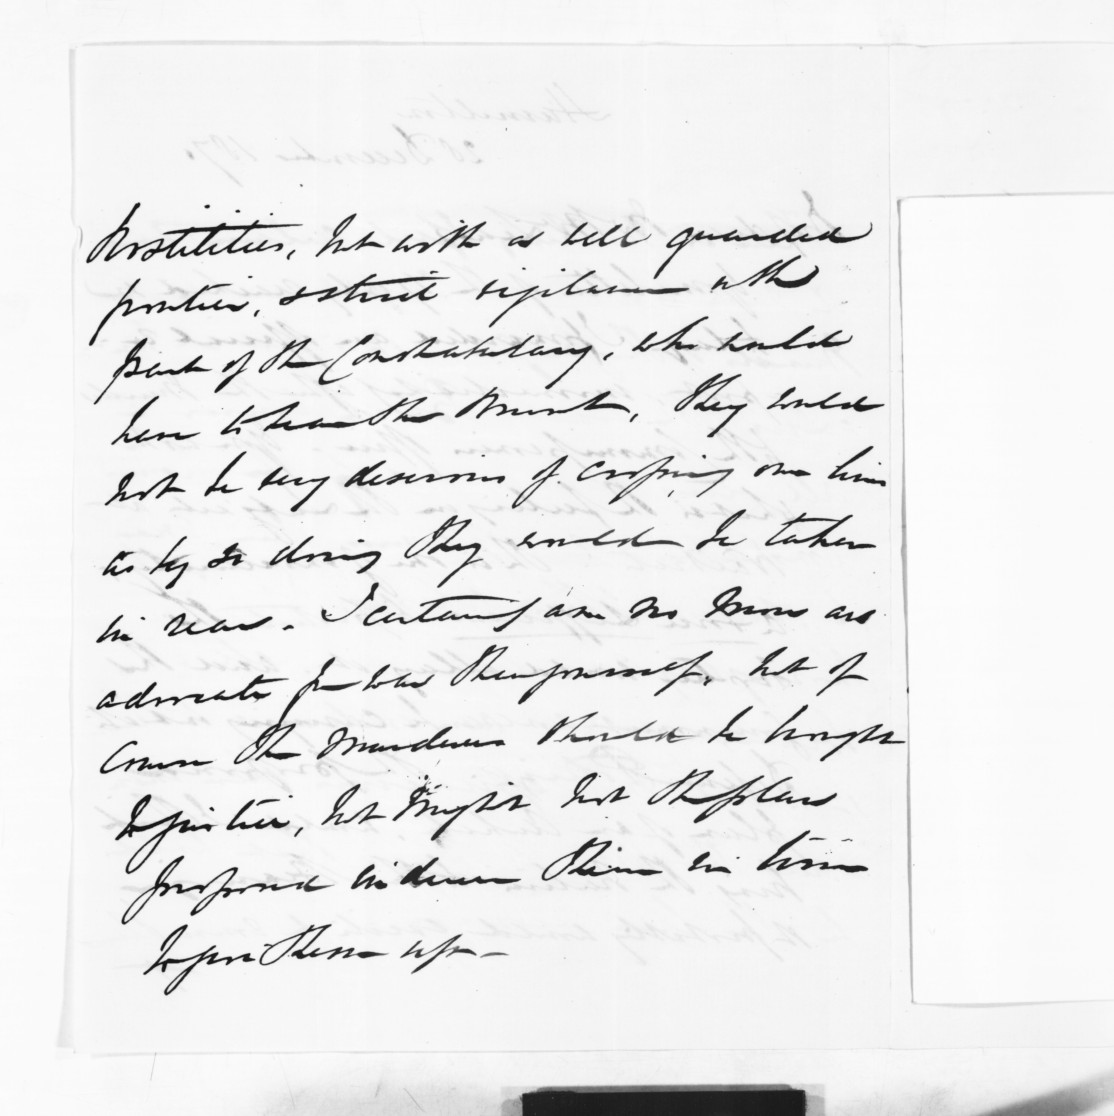 hostilities, but with a well guarded
frontier, & strict vigilance on the
part of the Constabulary, who would
have to leave the Mount, they would
not be very desirous of crossing our lines
as by so doing they would be taken
in rear. I certainly am no more an
advocate for war than yourself, but of
course the murderers should be brought
to justice, but might not the plans
proposed induce them in time
to give them up -